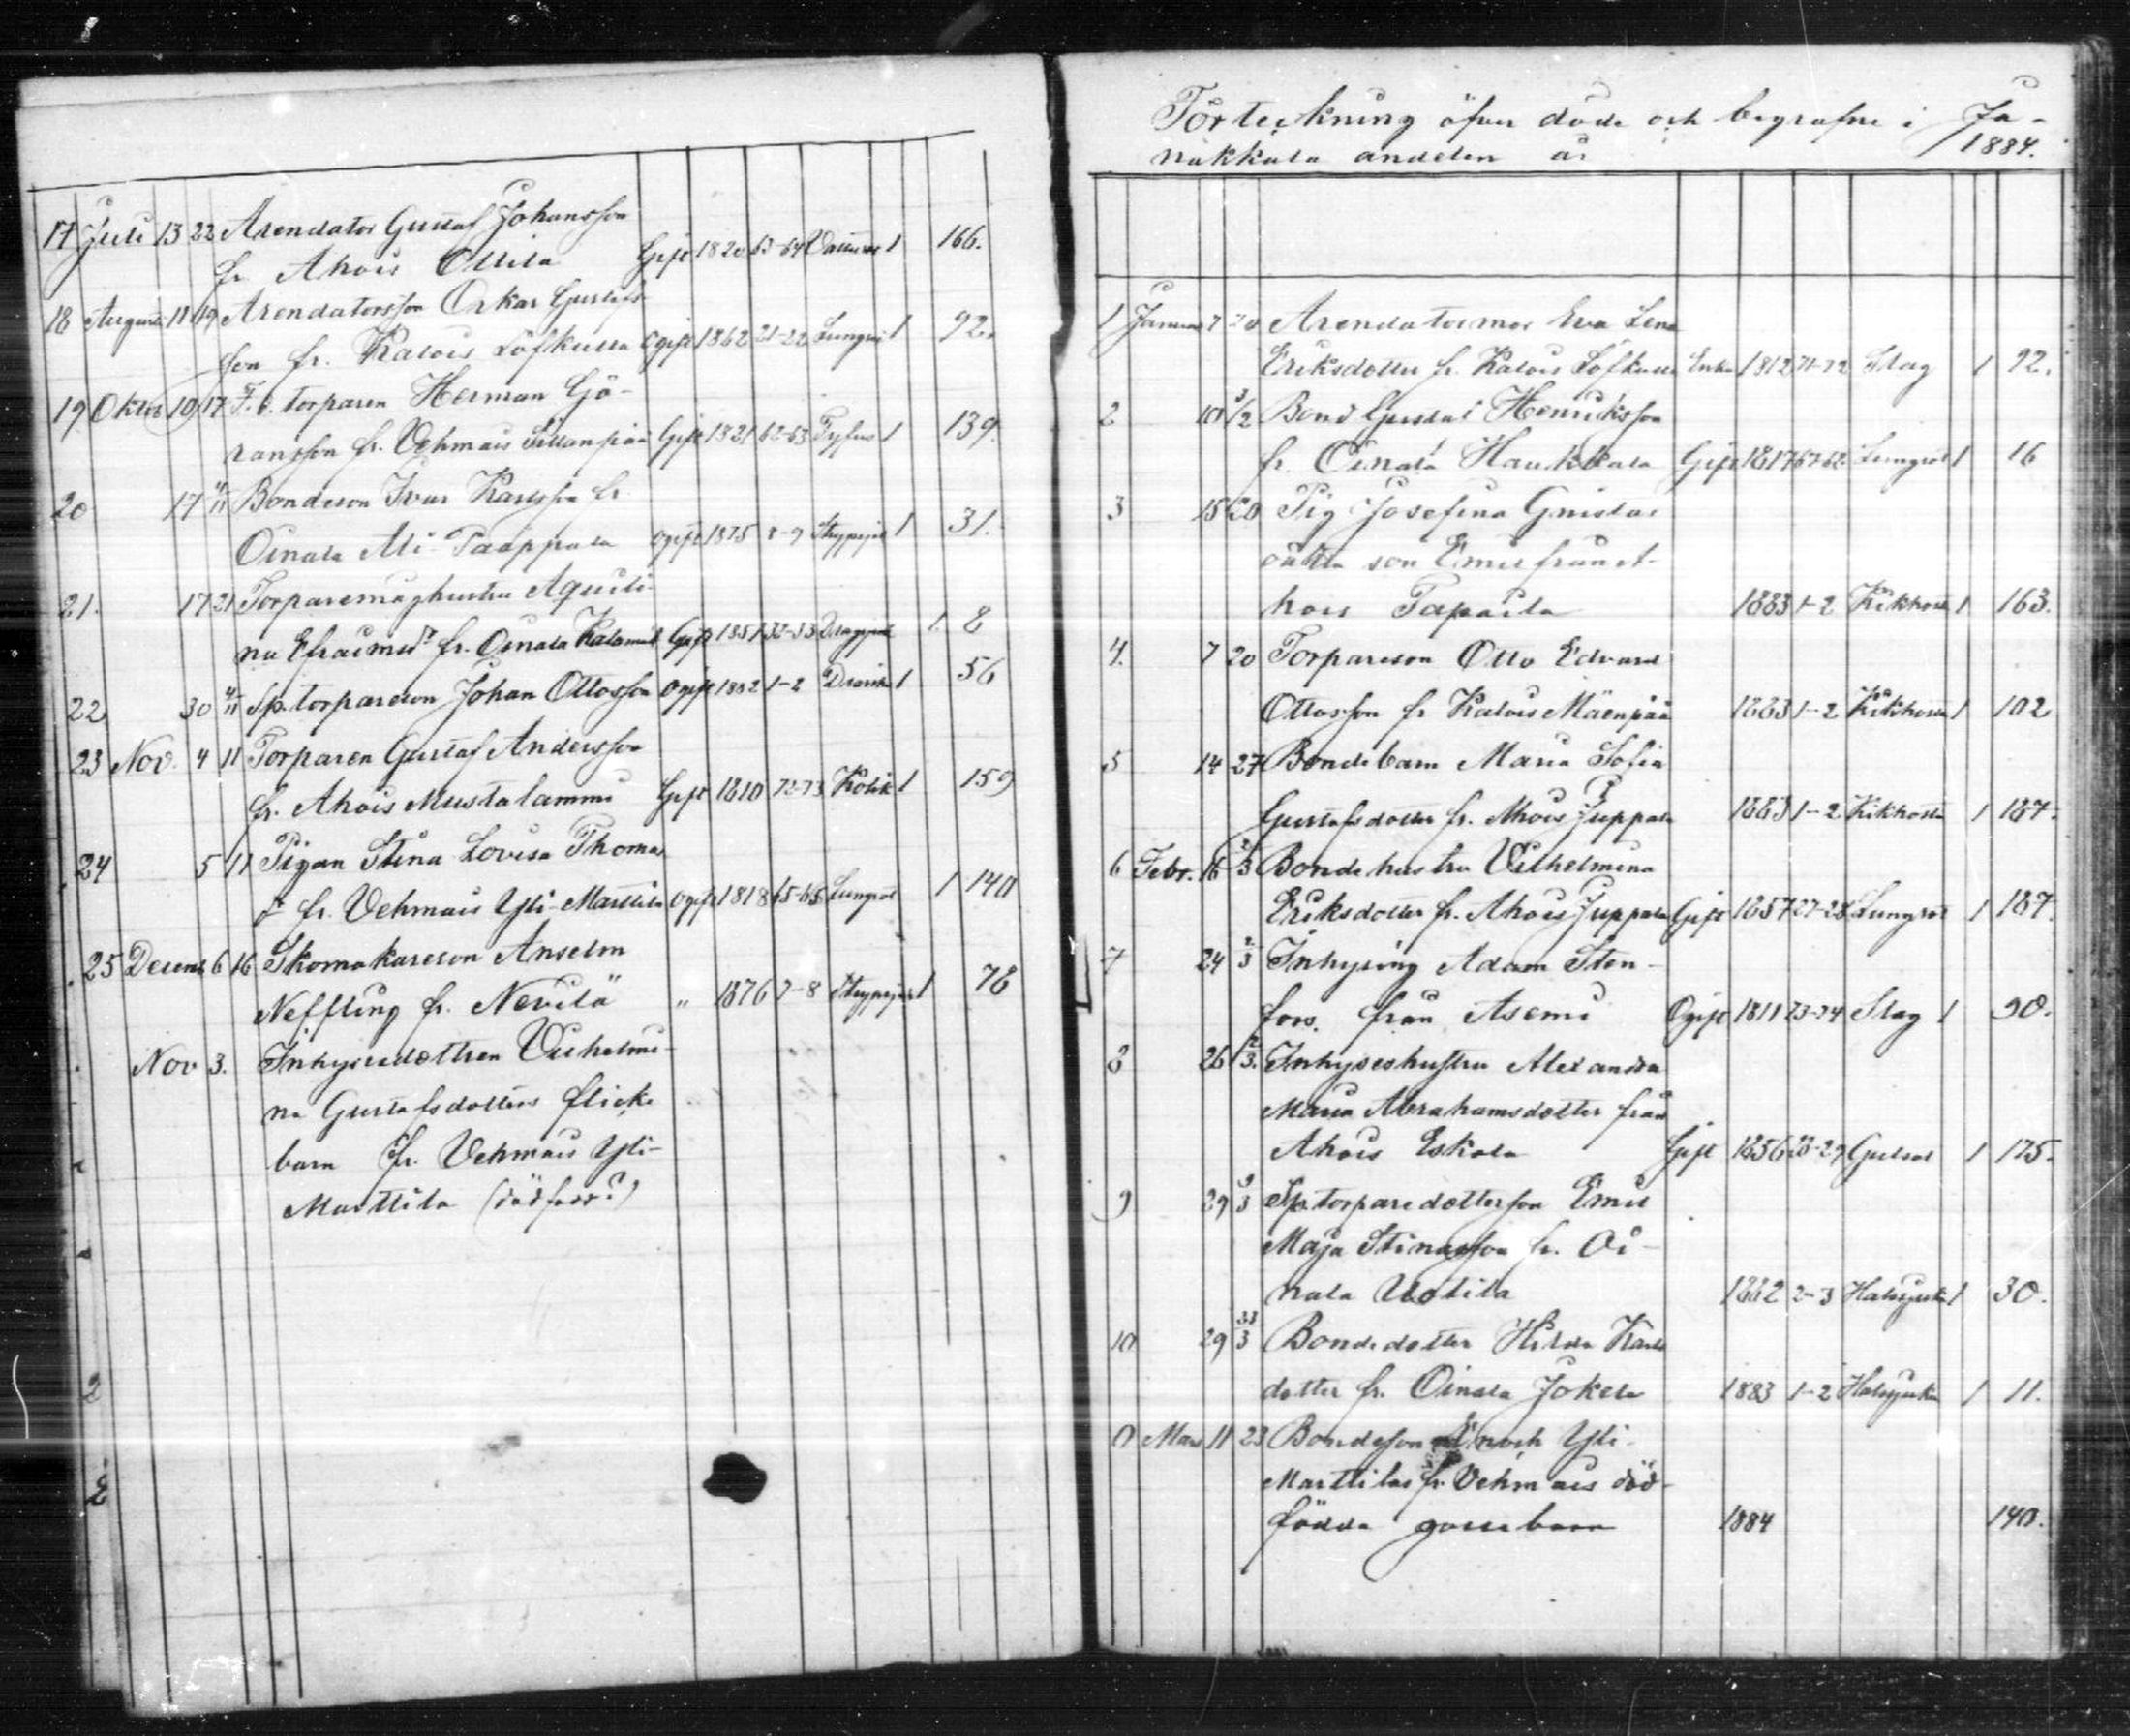 17 Juli 13 22 Arendator Gustaf Johansson
fr. Ahois Ollila Gift 1820 63-64 1 166.
18 Augusti 11 19 Arendatorsson Oskar Gustafs
son fr. Kalois Löfkulla Ogift 1862 21-22 Lungsot 1 92.
19 Oktob 10 17 F. d. torparen Herman Gö-
ransson fr. Vehmais Sillanpää Gift 1821 62-63 Tyfus 1 139.
20 17 4/11 Bondeson Ivar Karlsson fr
Oinala Ali Paappala ogift 1875 8-9 Strypsjuk 1 31.
21. 17 21 Torparemåghustru Aquili-
na Efraimsd fr. Oinala Gift 1851 32-33 1 8
22 30 4/11 Sp. torpareson Johan Ottosson Ogift 1882 1-2 1 56
23 Nov. 4 11 Torparen Gustaf Andersson
fr. Ahois Mustalammi Gift 1810 72-73 Kolik 1 159
24 5 11 Pigan Stina Lovisa Thomas
d fr. Vehmais Yli-Marttila Ogift 1818 65-66 Lungsot 1 140
25 Decemb 6 16 Skomakareson Anselm
Neffling fr. Nevilä " 1876 7-8 Strypsjuk 1 78
Nov 3. Inhysesdottren Vilhelmi-
na Gustafsdotters flicke
barn fr. Vehmais Yli-
Marttila (dödfödd?)
2
2
Förteckning öfver döde och begrafne i Ja-
nakkala andelen år 1884.
1 Januari 7 20 Arendatormor Eva Lena
Eriksdotter fr. Kalois Löfkulla Enka 1812 71-72 Slag 1 92.
2 10 3/2 Bond Gustaf Henriksson
fr. Oinala Haukkala Gift 1817 67-68 Lungsot 1 16
3 15 20 Pig Josefina Gustas
oäkta son Emil från A-
hois Tapaila 1883 1-2 Kikhosta 1 163.
4. 7 20 Torpareson Otto Edvard
Ottosson fr Kalois Mäenpää 1883 1-2 Kikhosta 1 102
5 14 27 Bondebarn Maria Sofia
Gustafsdotter fr. Ahois Juppala 1883 1-2 Kikhosta 1 187.
6 Febr. 16 2/3 Bondehustru Vilhelmina
Eriksdotter fr. Ahois Juppala Gift 1857 27-28 Lungsot 1 187.
7 24 2/3 Inhysing Adam Sten-
fors. från Asemi Ogift 1811 73-74 Slag 1 90.
8 26 2/3. Inhyseshustru Alexandra
Maria Abrahamsdotter från
Ahois Eskola Gift 1856 28-29 Gulsot 1 175.
9 29 9/3 Sp. torparedotterson Emil
Maja Stinasson fr. Oi-
nala Uotila 1882 2-3 Halssjuka 1 30.
10 29 23/3 Bondedotter Hilda Karls
dotter fr. Oinala Jokela 1883 1-2 Halssjuka 1 11.
11 Mars 11 23 Bondeson Enock Yli-
Marttilas fr. Vehmais död-
födda gossebarn 1884 140.